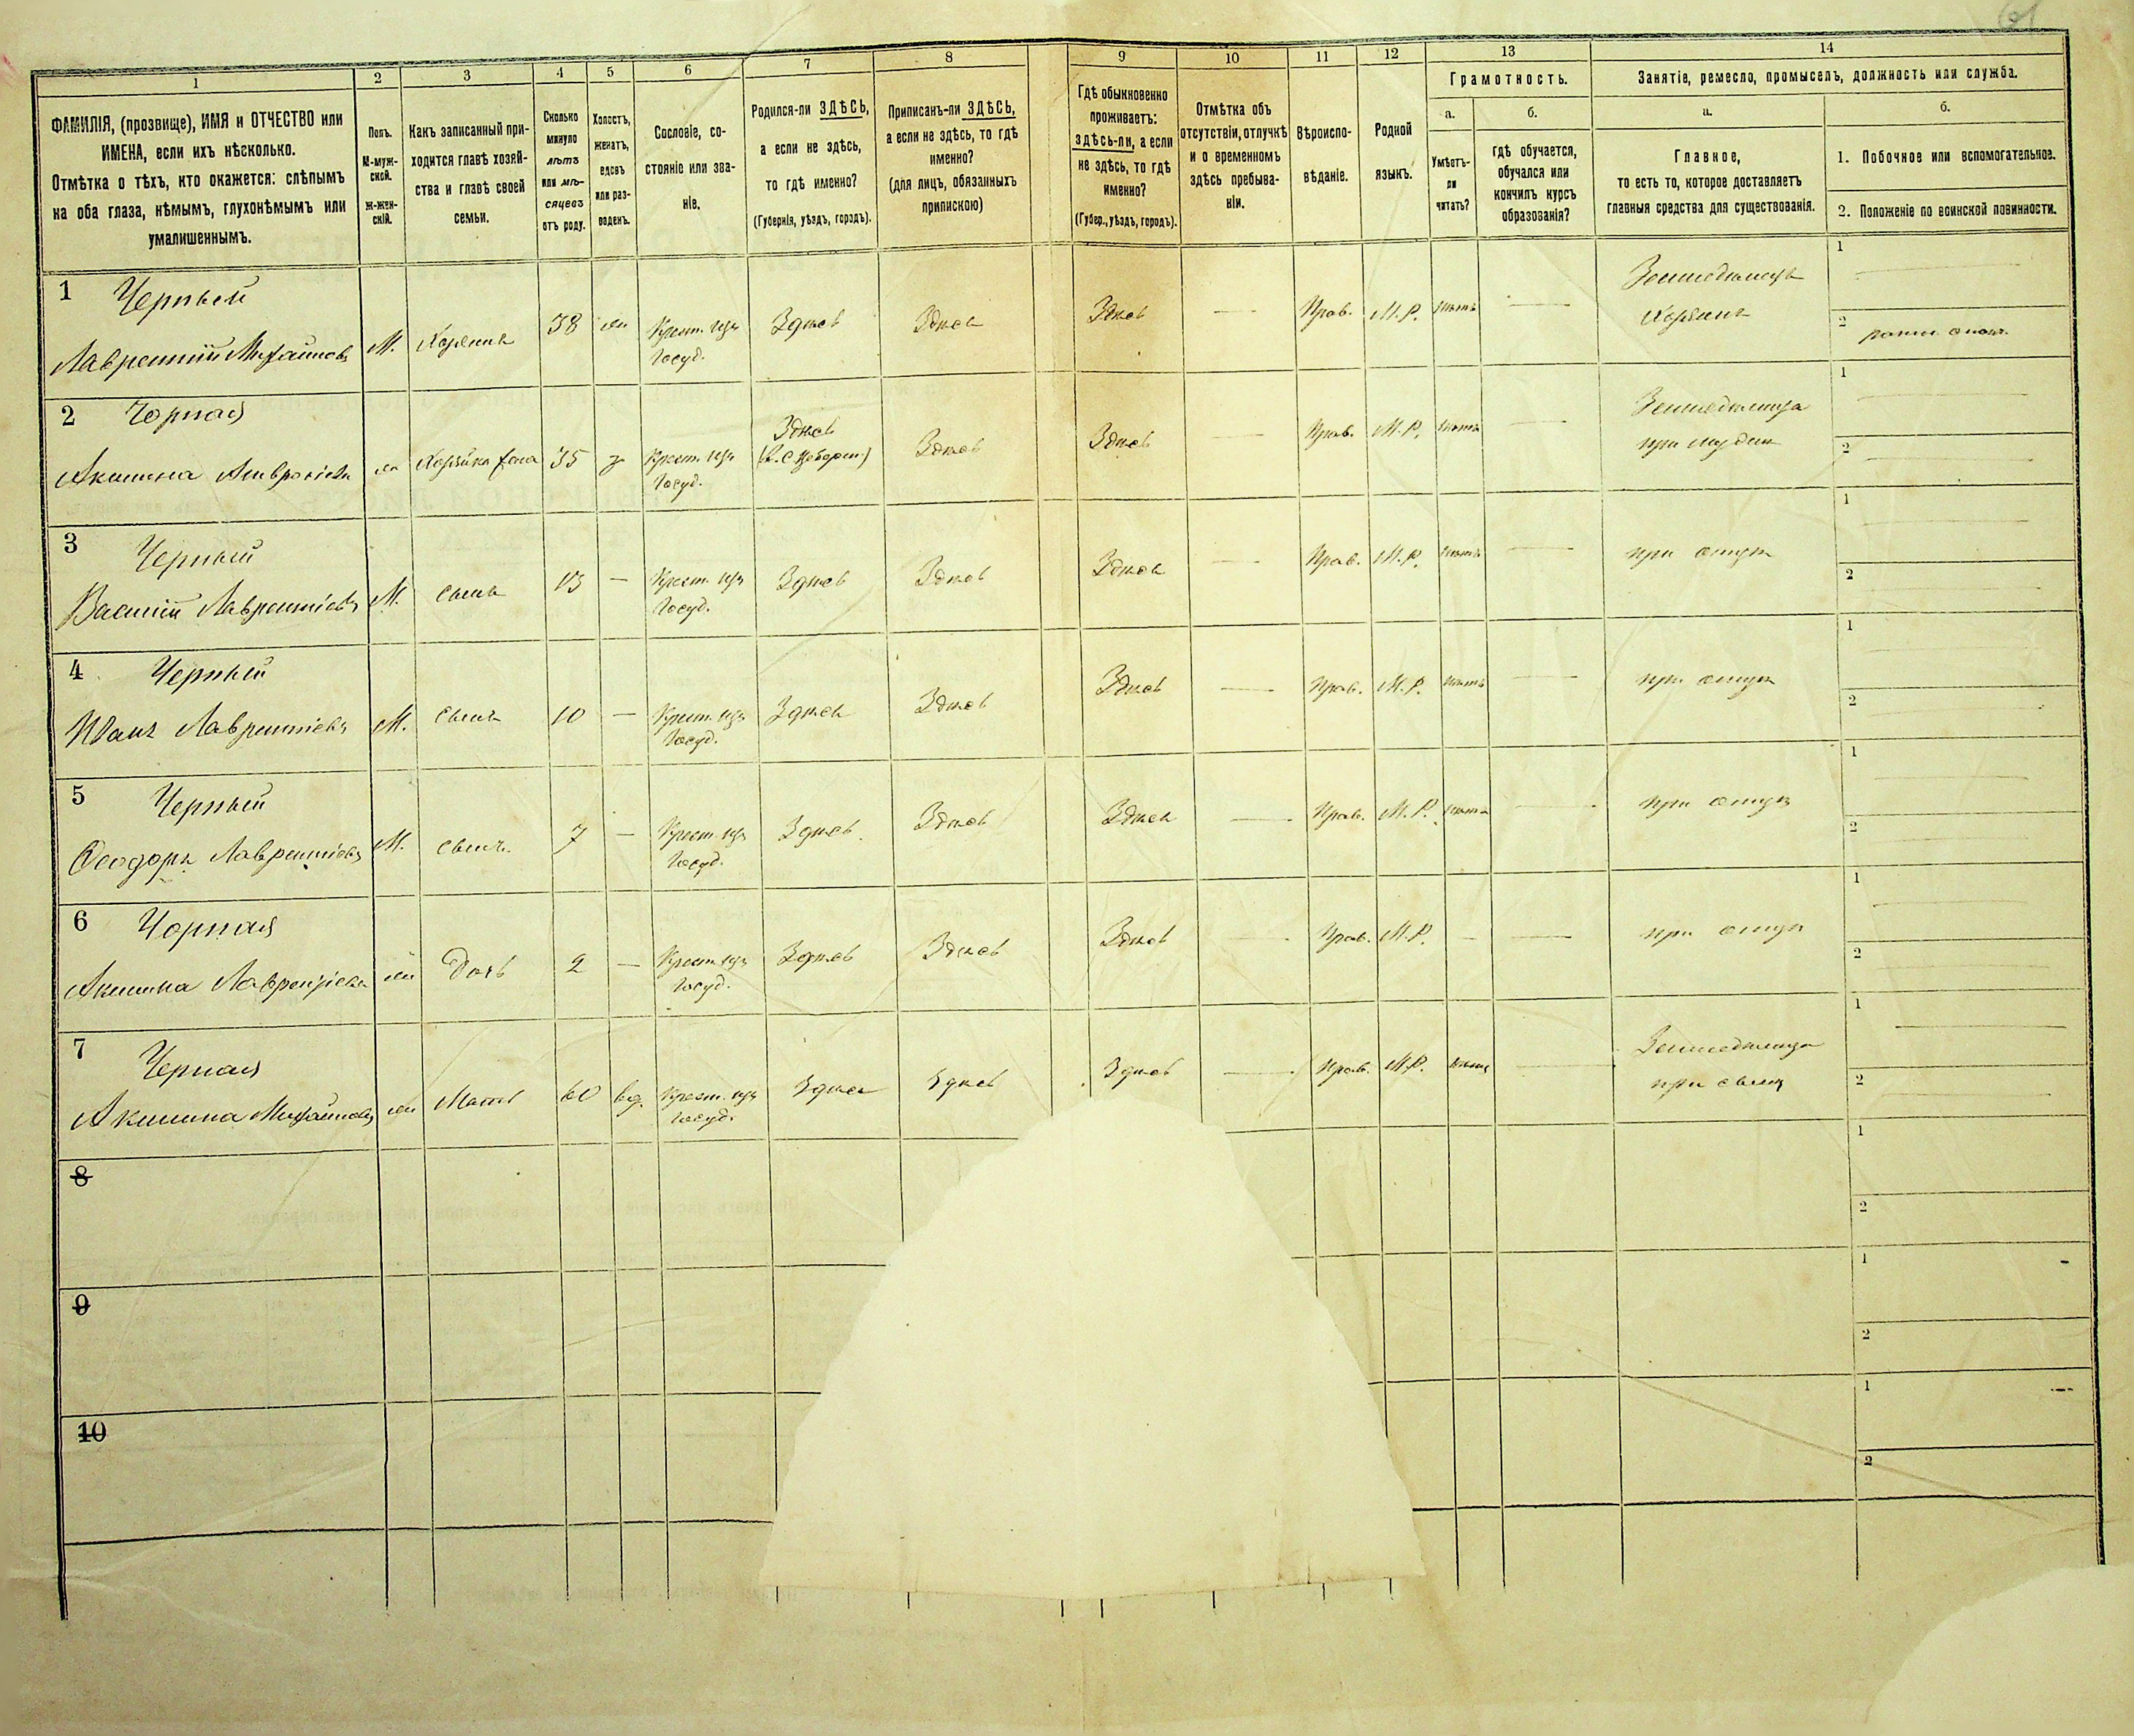 61
1 2 3 4 5 6 7 8 9 10 11 12 13 14
ФАМИЛІЯ, (прозвище), ИМЯ и ОТЧЕСТВО или
ИМЕНА, если ихъ нѣсколько.
Отмѣтка о тѣхъ, кто окажется: слѣпымъ
на оба глаза, нѣмымъ, глухонѣмымъ или
умалишеннымъ.
Полъ.
М-муж-
ской.
ж-жен-
скій.
Какъ записанный при-
ходится главѣ хозяй-
ства и главѣ своей
семьи.
Сколько
минуло
лѣтъ
или мѣ-
сяцевъ
отъ роду.
Холостъ,
женатъ,
вдовъ
или раз-
веденъ.
Сословіе, со-
стояніе или зва-
ніе.
Родился-ли ЗДѢСЬ,
а если не здѣсь,
то гдѣ именно?
(Губернія, уѣздъ, городъ).
Приписанъ-ли ЗДѢСЬ,
а если не здѣсь, то гдѣ
именно?
(для лицъ, обязанныхъ
припискою)
Гдѣ обыкновенно
проживаетъ:
ЗДѢСЬ-ли, а если
не здѣсь, то гдѣ
именно?
(Губер., уѣздъ, городъ).
Отмѣтка объ
отсутствіи, отлучкѣ
и о временномъ
здѣсь пребыва-
ніи.
Вѣроиспо-
вѣданіе.
Родной
языкъ.
Грамотность.
а.
Умѣетъ-
ли
читать?
б.
гдѣ обучается,
обучался или
кончилъ курсъ
образованія?
Занятіе, ремесло, промыселъ, должность или служба.
а.
Главное,
то есть то, которое доставляетъ
главныя средства для существованія.
б.
1. Побочное или вспомогательное.
2. Положеніе по воинской повинности.
1 Черный
Лаврентій Михайловъ М. Хозяинъ 38 жен Крест. изъ Госуд. Здѣсь Здѣсь Здѣсь — Прав. М.Р. нѣтъ — Земледѣлецъ
Хозяинъ
1
2
2 Чорная
Акилина хозяйка жена 35 з Крест. изъ Госуд. Здѣсь Здѣсь Здѣсь — Прав. М.Р. нѣтъ — Земледѣлица
при мужѣ
1
2
3 Черный
Василій Лаврентіевъ М. сынъ 13 — Крест. изъ Госуд. Здѣсь Здѣсь Здѣсь — Прав. М.Р. нѣтъ — при отцѣ
1
2
4 Черный
Иванъ Лаврентіевъ М. сынъ 10 — Крест. изъ Госуд. Здѣсь Здѣсь Здѣсь — Прав. М.Р. нѣтъ — при отцѣ
1
2
5 Черный
Ѳеодоръ Лаврентіевъ М. сынъ 7 — Крест. изъ Госуд. Здѣсь Здѣсь Здѣсь — Прав. М.Р. нѣтъ — при отцѣ
1
2
6 Чорная
Акилина Лаврентіева ж Дочь 2 — Крест. изъ Госуд. Здѣсь Здѣсь Здѣсь — Прав. М.Р. — — при отцѣ
1
2
7 Черная
Акилина Михайлова ж Мать 60 вд. Крест. изъ Госуд. Здѣсь Здѣсь Здѣсь — Прав. М.Р. нѣтъ — Земледѣлица
при сынѣ
1
2
8
1
2
9
1
2
10
1
2